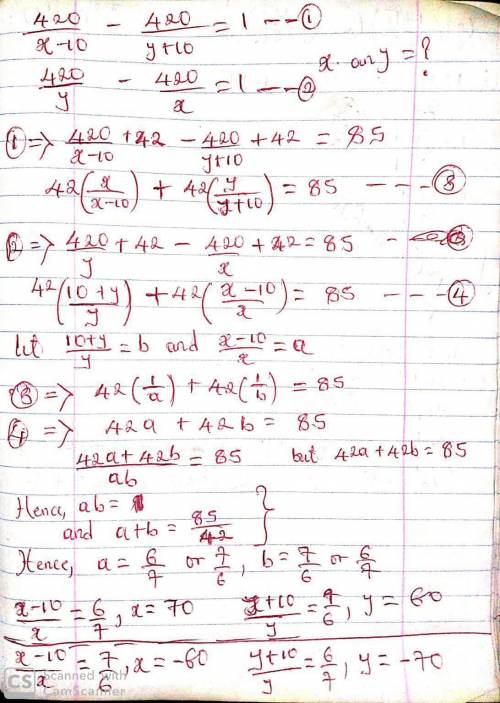 420/(x-10) - 420/(y+10) = 1 --- ①
420/y - 420/x = 1 --- ②
x and y = ?
① => 420/(x-10) + 42 - 420/(y+10) + 42 = 85
42(x/(x-10)) + 42(y/(y+10)) = 85 --- ③
② => 420/y + 42 - 420/x + 42 = 85 -
42((10+y)/y) + 42((x-10)/x) = 85 --- ④
let (10+y)/y = b and (x-10)/x = a
③ => 42(1/a) + 42(1/b) = 85
④ => 42a + 42b = 85
(42a + 42b)/ab = 85 but 42a + 42b = 85
Hence, ab = 1
and a+b = 85/42 }
Hence, a = 6/7 or 7/6, b = 7/6 or 6/7
(x-10)/x = 6/7, x = 70 (y+10)/y = 7/6, y = 60
(x-10)/x = 7/6, x = -60 (y+10)/y = 6/7, y = -70
CS Scanned with
CamScanner